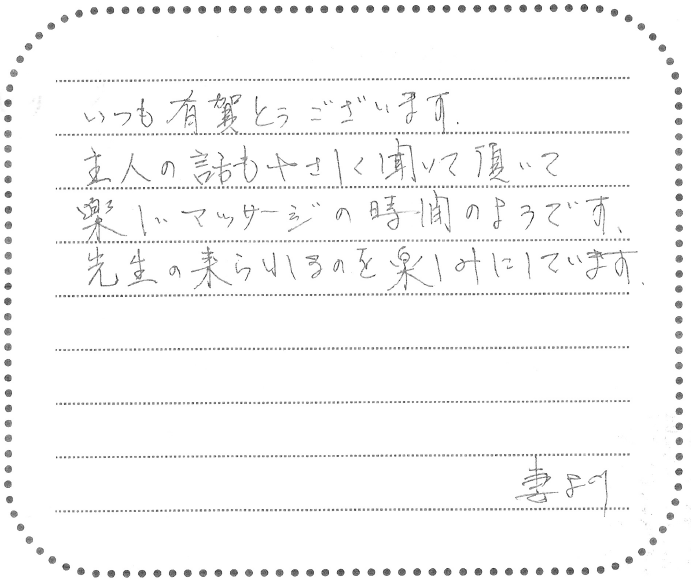 いつも有賀とうございます.
主人の話もやさしく聞いて頂いて
楽しいマッサージの時間のようです、
先生の来られるのを楽しみにしています.
妻より